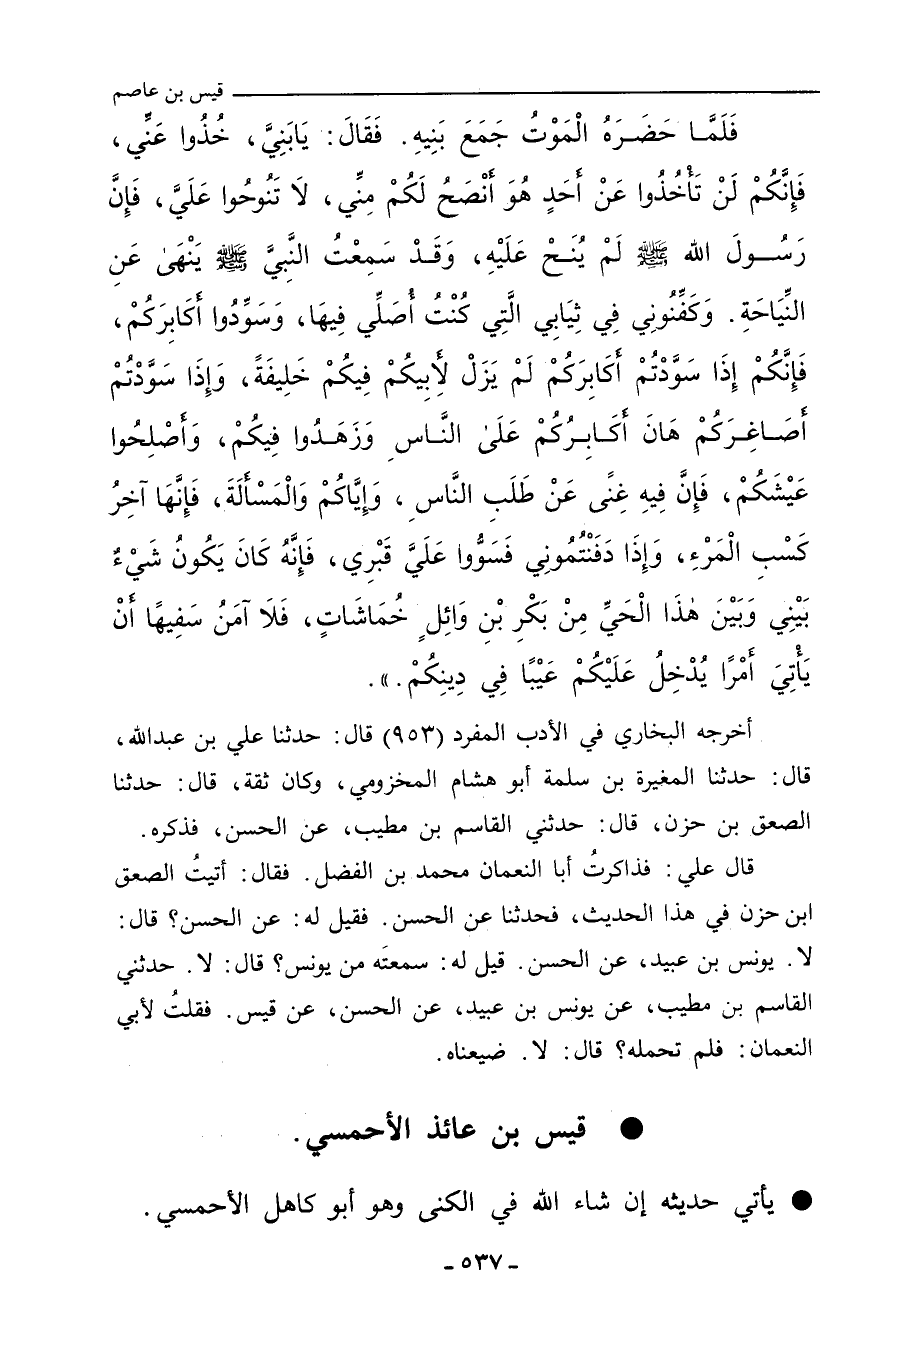 قيس بن عاصم
فَلَمَّا حَضَرَهُ الْمَوْتُ جَمَعَ بَنِيهِ. فَقَالَ: يَابَنِيَّ، خُذُوا عَنِّي،
فَإِنَّكُمْ لَنْ تَأْخُذُوا عَنْ أَحَدٍ هُوَ أَنْصَحُ لَكُمْ مِنِّي، لَا تَنُوحُوا عَلَيَّ، فَإِنَّ
رَسُولَ اللَّه ﷺ لَمْ يُنَحْ عَلَيْهِ، وَقَدْ سَمِعْتُ النَّبِيَّ ﷺ يَنْهَىٰ عَنِ
النِّيَاحَةِ. وَكَفِّنُونِي فِي ثِيَابِي الَّتِي كُنْتُ أُصَلِّي فِيهَا، وَسَوِّدُوا أَكَابِرَكُمْ،
فَإِنَّكُمْ إِذَا سَوَّدْتُمْ أَكَابِرَكُمْ لَمْ يَزَلْ لِأَبِيكُمْ فِيكُمْ خَلِيفَةً، وَإِذَا سَوَّدْتُمْ
أَصَاغِرَكُمْ هَانَ أَكَابِرُكُمْ عَلَىٰ النَّاسِ وَزَهَدُوا فِيكُمْ، وَأَصْلِحُوا
عَيْشَكُمْ، فَإِنَّ فِيهِ غِنًى عَنْ طَلَبِ النَّاسِ، وَإِيَّاكُمْ وَالْمَسْأَلَةَ، فَإِنَّهَا آخِرُ
كَسْبِ الْمَرْءِ، وَإِذَا دَفَنْتُمُونِي فَسَوُّوا عَلَيَّ قَبْرِي، فَإِنَّهُ كَانَ يَكُونُ شَيْءٌ
بَيْنِي وَبَيْنَ هٰذَا الْحَيِّ مِنْ بَكْرِ بْنِ وَائِلٍ خُمَاشَاتٍ، فَلَا آمَنُ سَفِيهًا أَنْ
يَأْتِيَ أَمْرًا يُدْخِلُ عَلَيْكُمْ عَيْبًا فِي دِينِكُمْ.».
أخرجه البخاري في الأدب المفرد (٩٥٣) قال: حدثنا علي بن عبدالله،
قال: حدثنا المغيرة بن سلمة أبو هشام المخزومي، وكان ثقة، قال: حدثنا
الصعق بن حزن، قال: حدثني القاسم بن مطيب، عن الحسن، فذكره.
قال علي: فذاكرتُ أبا النعمان محمد بن الفضل. فقال: أتيتُ الصعق
ابن حزن في هذا الحديث، فحدثنا عن الحسن. فقيل له: عن الحسن؟ قال:
لا. يونس بن عبيد، عن الحسن. قيل له: سمعتَه من يونس؟ قال: لا. حدثني
القاسم بن مطيب، عن يونس بن عبيد، عن الحسن، عن قيس. فقلتُ لأبي
النعمان: فلم تحمله؟ قال: لا. ضيعناه.
● قيس بن عائذ الأحمسي.
● يأتي حديثه إن شاء الله في الكنى وهو أبو كاهل الأحمسي.
- ٥٣٧ -